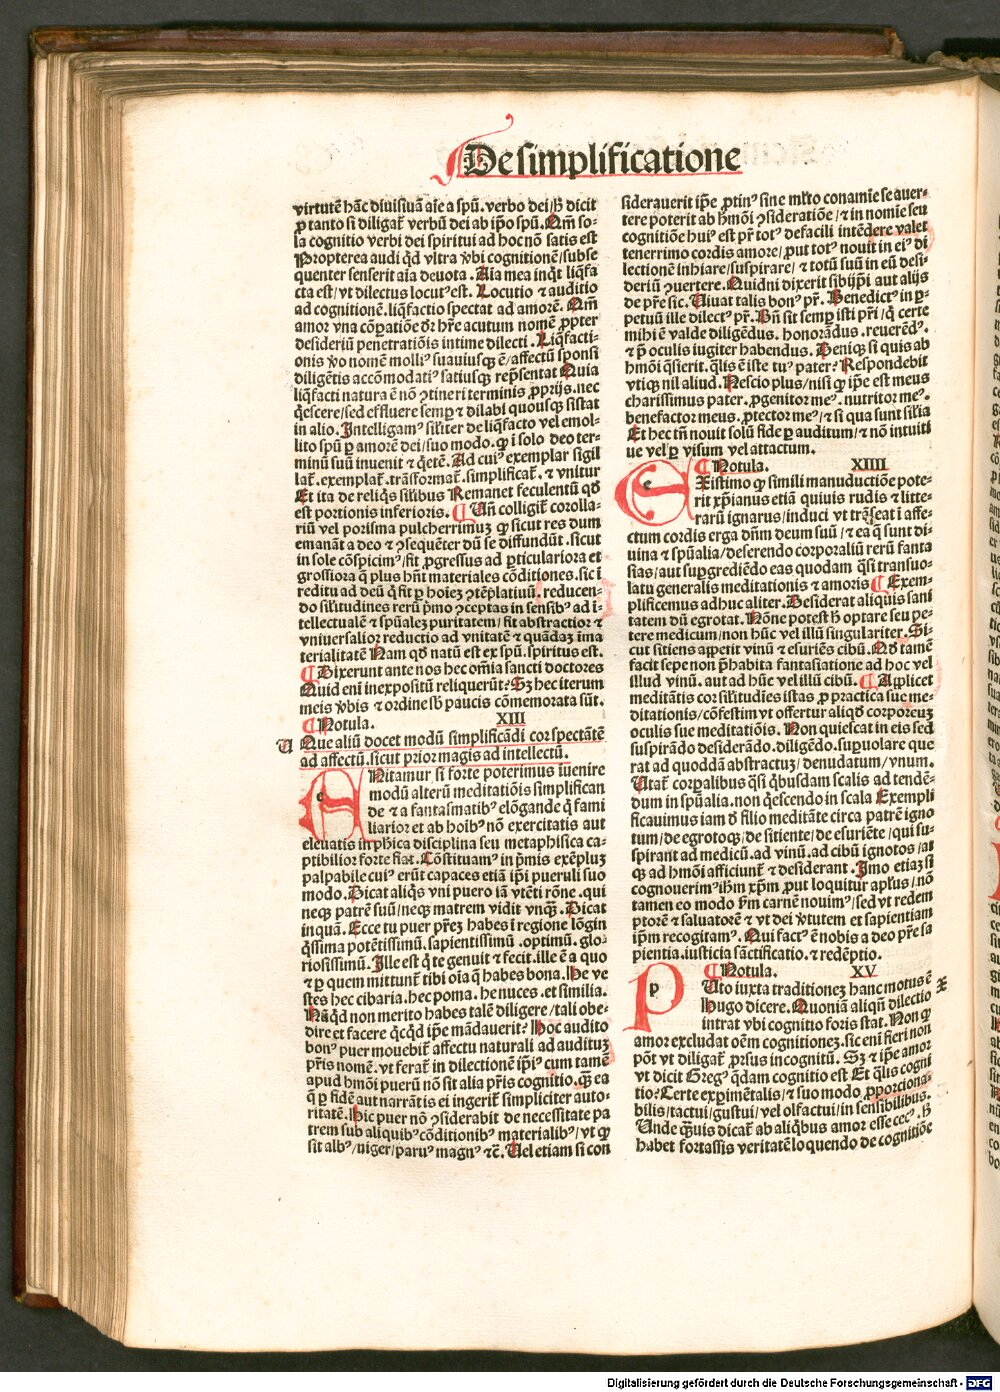 De simplificatione
virtutē hāc diuisiuā aīe a spū. verbo dei / ꝑ dicit
ꝓ tanto si diligat᷑ verbū dei ab ip̄o spū. Qm̄ so-
la cognitio verbi dei spiritui ad hoc nō satis est
Propterea audi qd̄ vltra v̓bi cognitionē / subse
quenter senserit aīa deuota. Aīa mea inq̄t liq̄fa
cta est / vt dilectus locut⁹ est. Locutio ⁊ auditio
ad cognitionē. liq̄factio spectat ad amorē. Qm̄
amor vna cōꝑatiōe dr̄ hr̄e acutum nomē ꝓpter
desideriū penetratiōis intime dilecti. Liq̄facti-
onis v̓o nomē molli⁹ suauiusqꝫ ē / affectū sponsi
diligētis accōmodati⁹ satiusqꝫ rep̄sentat Quia
liq̄facti natura ē nō ꝯtineri terminis ꝓprijs. nec
q̄escere / sed effluere semꝑ ⁊ dilabi quousqꝫ sistat
in alio. Intelligam⁹ sil̓iter de liq̄facto vel emol-
lito spū ꝑ amorē dei / suo modo. ꝙ ī solo deo ter-
minū suū inuenit ⁊ q̄etē. Ad cui⁹ exemplar sigil
lat᷑. exemplat᷑. trāsformat᷑. simplificat᷑. ⁊ vnitur
Et ita de reliq̄s silibus Remanet feculentū qd̄
est portionis inferioris. ¶ Uñ colligit᷑ corolla-
riū vel porisma pulcherrimuꝫ ꝙ sicut res dum
emanāt a deo ⁊ ꝯseq̄uēter dū se diffundūt. sicut
in sole cōspicim⁹ / fit ꝓgressus ad ꝑticulariora et
grossiora q̄ plus hn̄t materiales cōditiones. sic ī
reditu ad deū q̄ fit ꝑ hoīeꝫ ꝯtēplatiuū. reducen-
do sil̓itudines rerū p̄mo ꝯceptas in sensib⁹ ad ī-
tellectualē ⁊ spūaleꝫ puritatem / fit abstractior ⁊
vniuersalior reductio ad vnitatē ⁊ quādaꝫ īma
terialitatē Nam qd̄ natū est ex spū. spiritus est.
¶ Dixerunt ante nos hec om̄ia sancti doctores
Quid enī inexpositū reliquerūt? Sꝫ hec iterum
meis v̓bis ⁊ ordine sb̄ paucis cōmemorata sūt.
¶ Notula. XIII
U Que aliū docet modū simplificādi cor spectātē
ad affectū. sicut prior magis ad intellectū.
c Nitamur si forte poterimus īuenire
modū alterū meditatiōis simplifican
de ⁊ a fantasmatib⁹ elōgande q̄ fami
liarior et ab hoīb⁹ nō exercitatis aut
eleuatis in ph̄ica disciplina seu metaphisica ca-
ptibilior forte fiat. Cōstituam⁹ in p̄mis exēpluꝫ
palpabile cui⁹ erūt capaces etiā ip̄i pueruli suo
modo. Dicat aliq̄s vni puero iā vtēti rōne. qui
neqꝫ patrē suū / neqꝫ matrem vidit vnq̄ꝫ. Dicat
inquā. Ecce tu puer pr̄eꝫ habes ī regione lōgin
q̄ssima potētissimū. sapientissimū. optimū. glo-
riosissimū. Ille est q̄ te genuit ⁊ fecit. ille ē a quo
⁊ ꝑ quem mittunt᷑ tibi oīa q̄ habes bona. He ve
stes hec cibaria. hec poma. he nuces. et similia.
Nūqd̄ non merito habes talē diligere / tali obe-
dire et facere q̄cqd̄ ip̄e mādauerit? Hoc audito
bon⁹ puer mouebit᷑ affectu naturali ad audituꝫ
pr̄is nomē. vt ferat᷑ in dilectionē ip̄i⁹ cum tamē
apud hmōi puerū nō sit alia pr̄is cognitio. qꝫ ea
q̄ ꝑ fidē aut narrātis ei ingerit᷑ simpliciter auto-
ritatē. Hic puer nō ꝯsiderabit de necessitate pa
trem sub aliquib⁹ cōditionib⁹ materialib⁹ / vt ꝙ
sit alb⁹ / niger / paru⁹ magn⁹ ⁊c̄. Uel etiam si con
siderauerit ip̄e ꝓtin⁹ sine ml̓to conamīe se auer-
tere poterit ab hmōi ꝯsideratiōe / ⁊ in nomīe seu
cognitiōe hui⁹ est pr̄ tot⁹ de facili intēdere valet
tenerrimo cordis amore / ꝓut tot⁹ nouit in ei⁹ di
lectionē inhiare / suspirare / ⁊ totū suū in eū desi-
deriū ꝯuertere. Quidni dixerit sibijp̄i aut alijs
de pr̄e sic. Uiuat talis bon⁹ pr̄. Benedict⁹ in ꝑ-
petuū ille dilect⁹ pr̄. Bn̄ sit semꝑ isti pr̄i / q̄ certe
mihi ē valde diligēdus. honorādus. reuerēd⁹.
⁊ p̄ oculis iugiter habendus. Deniqꝫ si quis ab
hmōi q̄sierit. q̄lis ē iste tu⁹ pater? Respondebit
vtiqꝫ nil aliud. Nescio plus / nisi ꝙ ip̄e est meus
charissimus pater. ꝓgenitor me⁹. nutritor me⁹.
benefactor meus. ꝓtector me⁹ / ⁊ si qua sunt sil̓ia
Et hec tn̄ nouit solū fide ꝑ auditum / ⁊ nō intuiti
ue vel ꝑ visum vel attactum.
¶ Notula. XIIII
e Xistimo ꝙ simili manuductiōe pote-
rit xp̄ianus etiā quiuis rudis ⁊ litte-
rarū ignarus / induci vt trāseat ī affe-
ctum cordis erga dn̄m deum suū / ⁊ ea q̄ sunt di-
uina ⁊ spūalia / deserendo corporaliū rerū fanta
sias / aut suꝑgrediēdo eas quodam q̄si transuo-
latu generalis meditationis ⁊ amoris ¶ Exem-
plificemus adhuc aliter. Desiderat aliquis sani
tatem dū egrotat. Nōne potest h̄ optare seu pe-
tere medicum / non hūc vel illū singulariter. Si-
cut sitiens appetit vinū ⁊ esuriēs cibū. Qd̄ tamē
facit sepe non p̄habita fantasiatione ad hoc vel
illud vinū. aut ad hūc vel illū cibū. ¶ Applicet
meditātis cor sil̓itudīes istas ꝓ practica sue me-
ditationis / cōfestim vt offertur aliqd̄ corporeuꝫ
oculis sue meditatiōis. Non quiescat in eis sed
suspirādo desiderādo. diligēdo. suꝑuolare que
rat ad quoddā abstractuꝫ / denudatum / vnum.
Utat᷑ corꝑalibus q̄si q̄busdam scalis ad tendē-
dum in spūalia. non q̄escendo in scala Exempli
ficauimus iam d̄ filio meditāte circa patrē igno
tum / de egrotoqꝫ / de sitiente / de esuriēte / qui su-
spirant ad medicū. ad vinū. ad cibū ignotos / at
qꝫ ad hmōi afficiunt᷑ ⁊ desiderant. Imo etiaꝫ si
cognouerim⁹ ih̄m xp̄m ꝓut loquitur apl̓us / nō
tamen eo modo ẜm carnē nouim⁹ / sed vt redem
ptorē ⁊ saluatorē ⁊ vt dei v̓tutem et sapientiam
ip̄m recogitam⁹. Qui fact⁹ ē nobis a deo pr̄e sa
pientia. iusticia sāctificatio. ⁊ redēptio.
¶ Notula. XV
p Uto iuxta traditioneꝫ hanc motus ē X
Hugo dicere. Quoniā aliqn̄ dilectio
intrat vbi cognitio foris stat. Non ꝙ
amor excludat oēm cognitioneꝫ. sic enī fieri non
pōt vt diligat᷑ ꝓrsus incognitū. Sꝫ ⁊ ip̄e amor
vt dicit Greg⁹ q̄dam cognitio est Et q̄lis cogni
tio? Certe exꝑimētalis / ⁊ suo modo ꝓporciona-
bilis / tactui / gustui / vel olfactui / in sensibilibus.
Unde q̄ꝫuis dicat᷑ ab aliq̄bus amor esse cec⁹. ꝑ
habet fortassis veritatē loquendo de cognitiōe
Digitalisierung gefördert durch die Deutsche Forschungsgemeinschaft - DFG